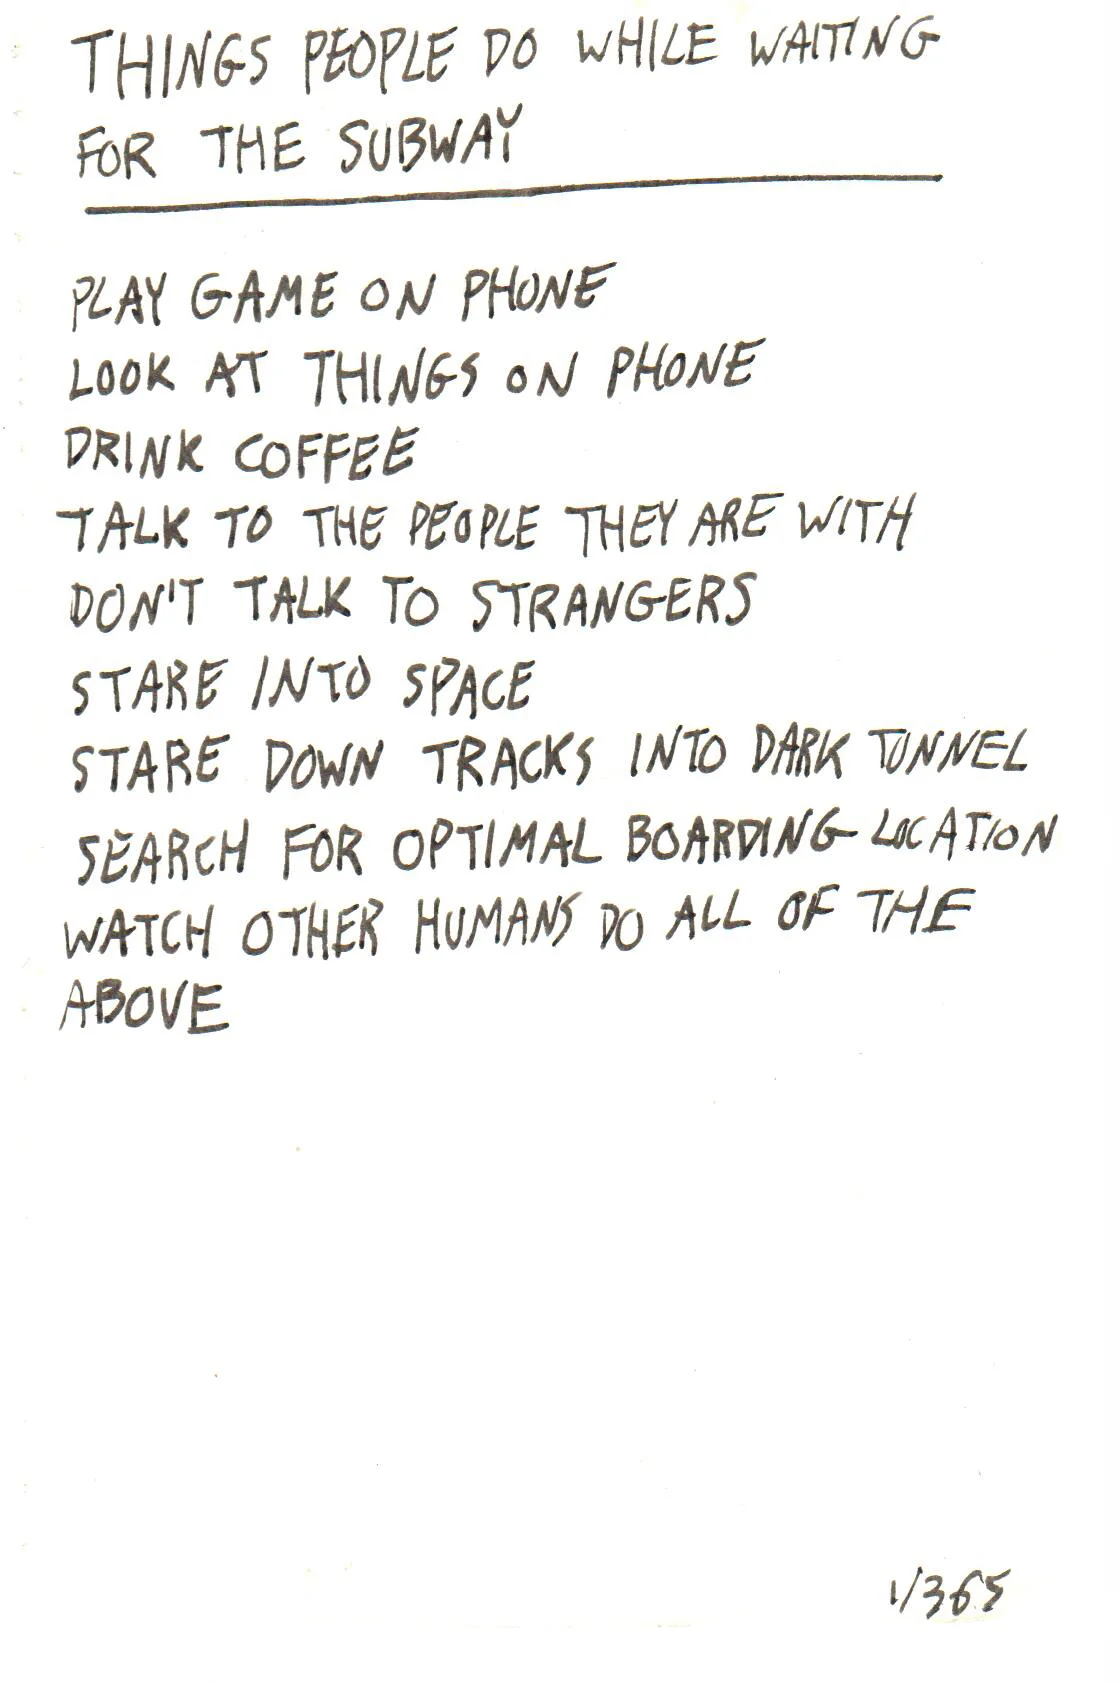 THINGS PEOPLE DO WHILE WAITING
FOR THE SUBWAY
PLAY GAME ON PHONE
LOOK AT THINGS ON PHONE
DRINK COFFEE
TALK TO THE PEOPLE THEY ARE WITH
DON'T TALK TO STRANGERS
STARE INTO SPACE
STARE DOWN TRACKS INTO DARK TUNNEL
SEARCH FOR OPTIMAL BOARDING LOCATION
WATCH OTHER HUMANS DO ALL OF THE
ABOVE
1/365